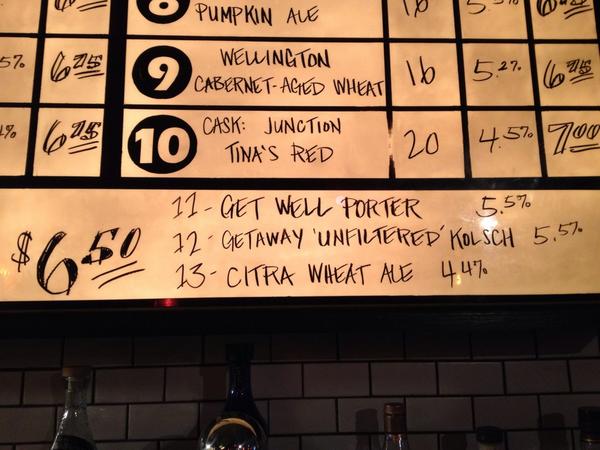 8 PUMPKIN ALE 16
5% 6.75 9 WELLINGTON 16 5.2% 6.75
CABERNET-AGED WHEAT
6.75 10 CASK: JUNCTION 20 4.5% 7.00
TINA'S RED
$6.50
11 - GET WELL PORTER 5.5%
12 - GETAWAY 'UNFILTERED' KOLSCH 5.5%
13 - CITRA WHEAT ALE 4.4%